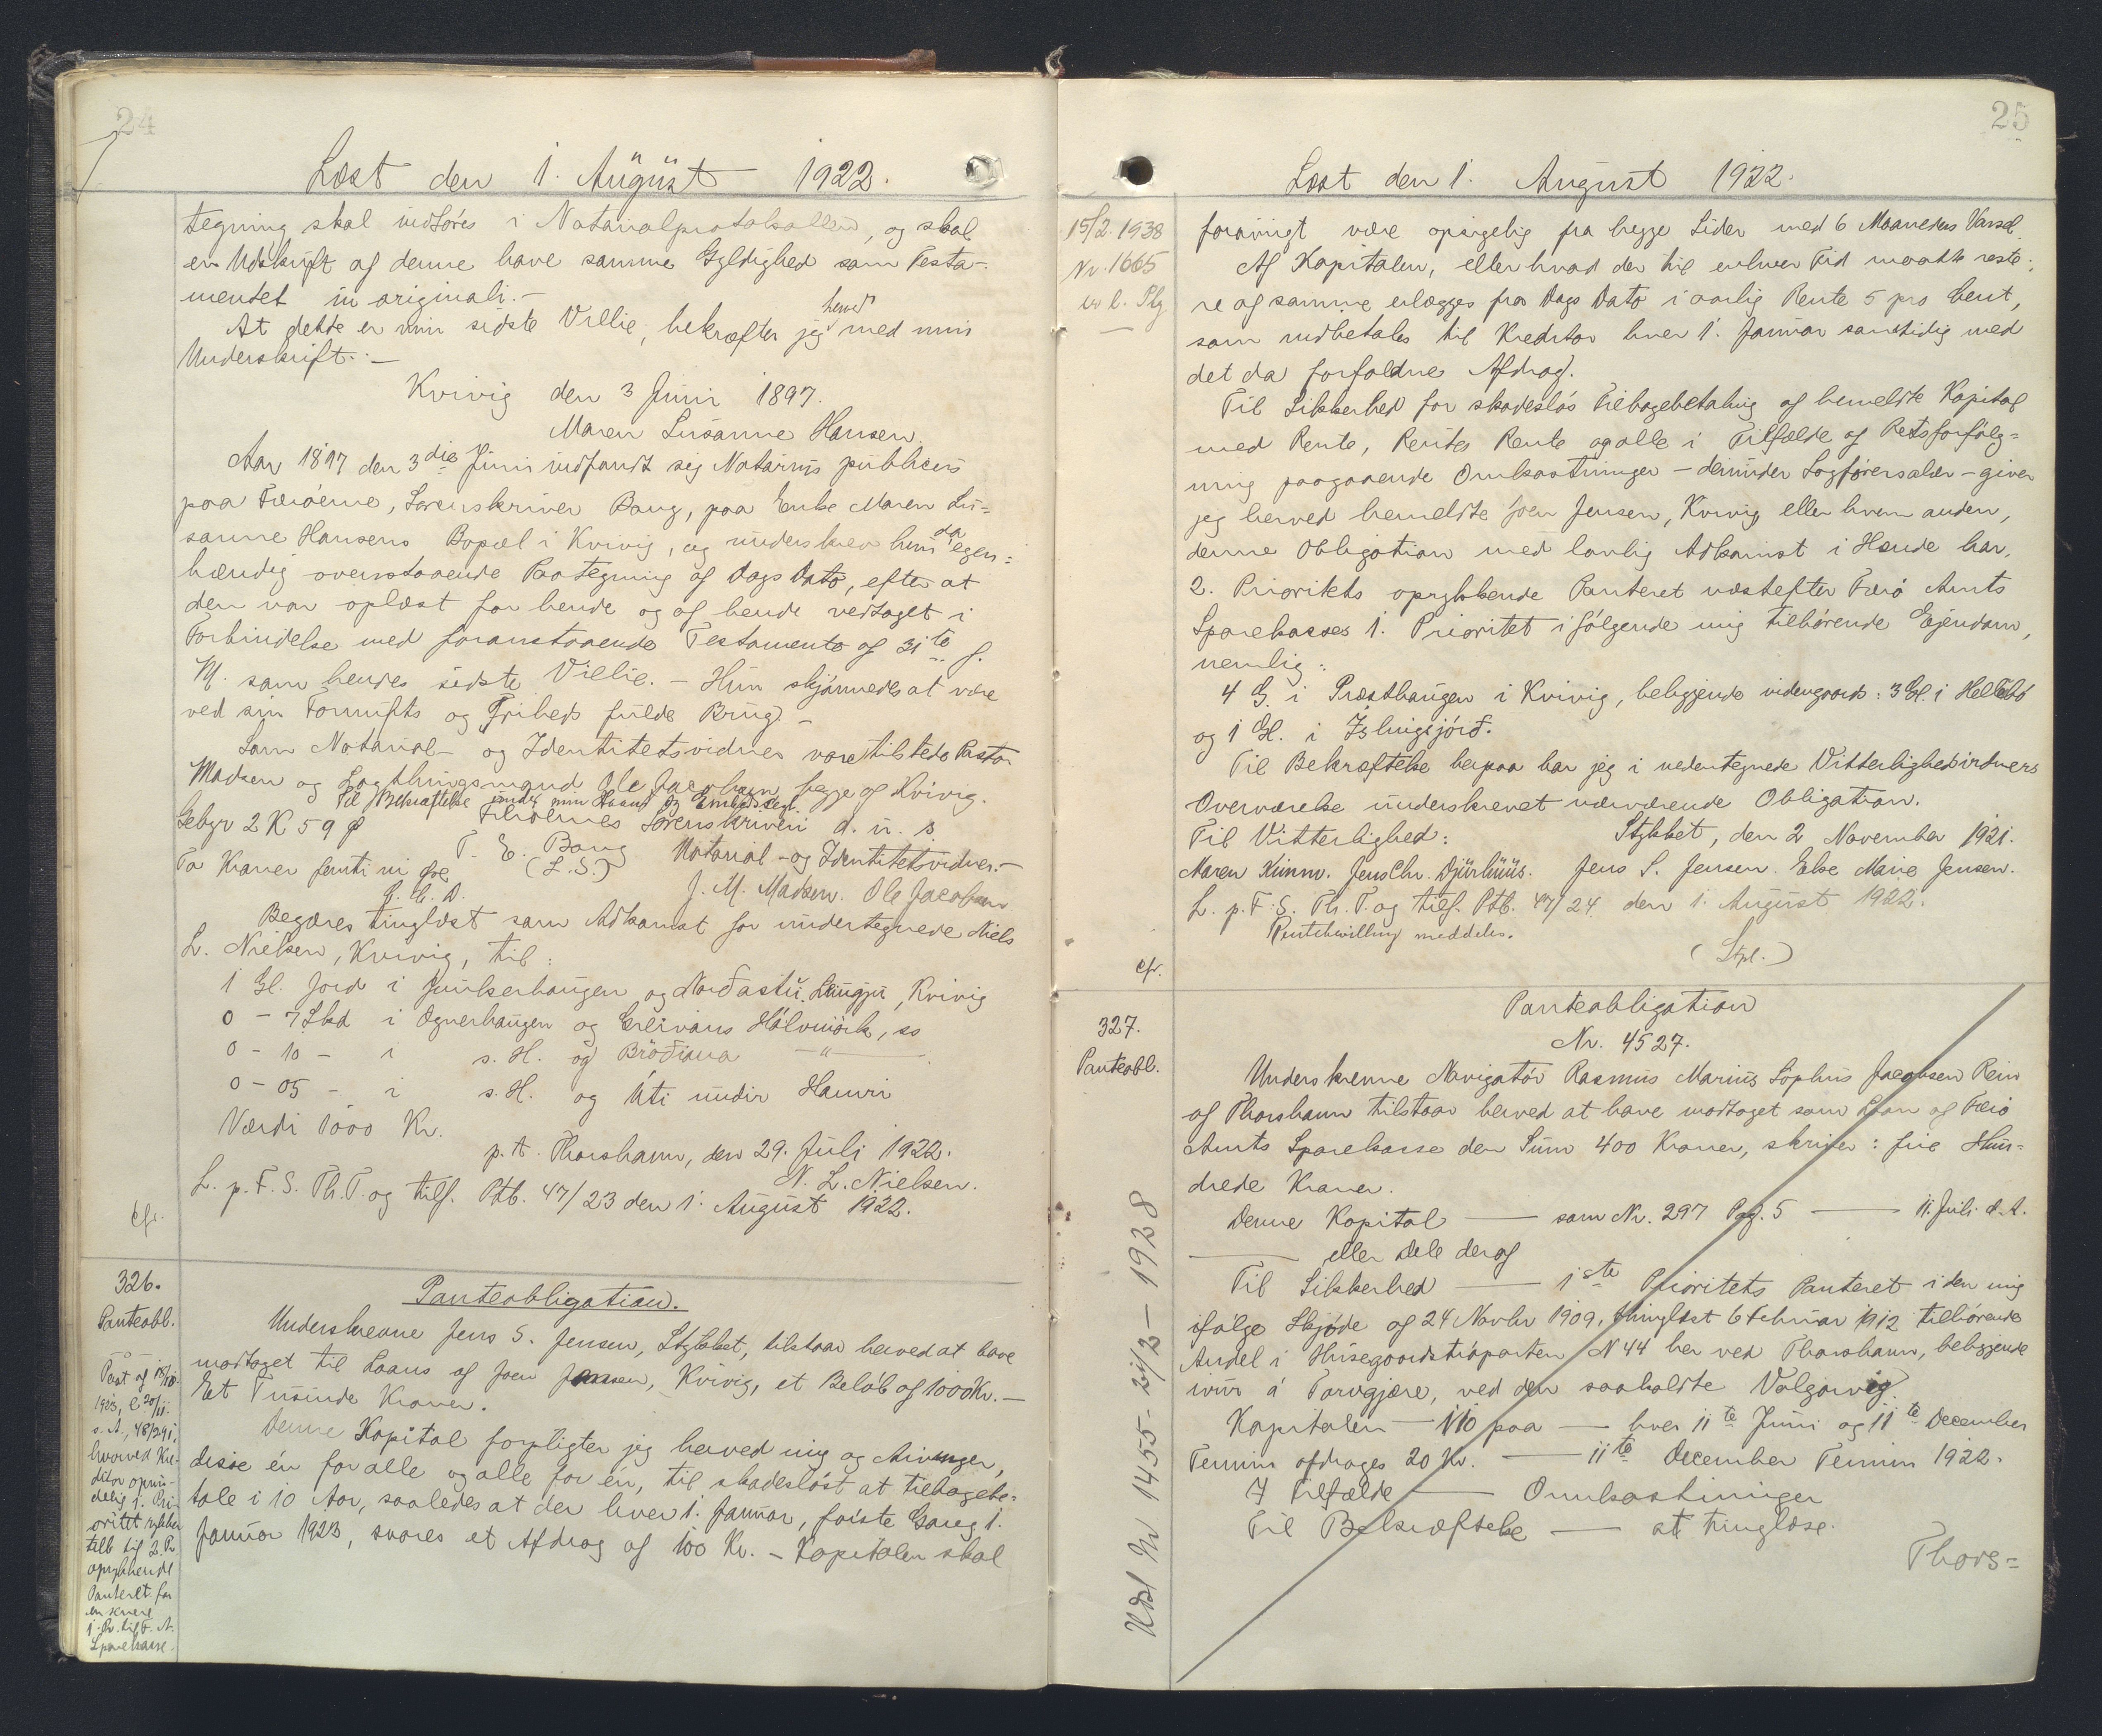 24
Læst den 1. August 1922.
tegning skal indføres i Notarialprotokollen, og skal
en Udskrift af denne have samme Gyldighed som Testa-
mentet in originali.-
At dette er min sidste Villie, bekræfter jeg herved med min
Underskrift.-
Kvivig den 3 Juni 1897.
Maren Susanne Hansen.
Aar 1897 den 3die Juni indfandt sig Notarius publicus
paa Færøerne, Sorenskriver Bang, paa Enke Maren Su-
sanne Hansens Bopæl i Kvivig, og underskrev hun da egen-
hændig ovenstaaende Paategning af Dags Dato, efter at
den var oplæst for hende og af hende vedtaget i
Forbindelse med foranstaaende Testamente af 31te f.
M. som hendes sidste Villie. - Hun skjønnedes at være
ved sin Fornufts og Friheds fulde Brug. -
Som Notarial- og Identitetsvidner vare tilstede Pastor
Madsen og Lagthingsmand Ole Jacobsen begge af Kvivig.
Til Bekræftelse under min Haand og Embedssegl.
Gebyr 2 K 59 Ø Færøernes Sorenskriveri d. u. s.
To Kroner femti ni Øre T. E. Bang Notarial- og Identitetsvidner.-
(L.S.)
J. M. Madsen. Ole Jacobsen
Begæres tinglæst som Adkomst for undertegnede Niels
L. Nielsen, Kvivig, til:
1 Gl. Jord i Junkerhaugen og Norðastu Laugju, Kvivig
0 - 7 Skd i Ognerhaugen og Hálvmörk, ss
0 - 10 - i s. H. og Bröðiana -"-
0 - 05 - i s. H. og Úti undir Hamri
Værdi 1000 Kr.
p. t. Thorshavn, den 29. Juli 1922.
N. L. Nielsen.
L. p. F. S. Th. T. og tilf. Ptb. 47/23 den 1. August 1922.
cfr.
326.
Panteobl.
Panteobligation.
Underskrevne Jens S. Jensen, Stykket, tilstaar herved at have
modtaget til Laans af Joen Jensen, Kvivig, et Beløb af 1000 Kr. -
Et Tusinde Kroner.
Denne Kapital forpligter jeg herved mig og Arvinger,
disse én for alle og alle for én, til skadesløst at tilbagebe-
tale i 10 Aar, saaledes at der hver 1. Januar, første Gang 1.
Januar 1923, svares et Afdrag af 100 Kr. - Kapitalen skal
Paat af 18/10
1923, l. 20/11
s. A., 48/291,
hvorved Kre-
ditor oprin-
delig 1. Pri-
oritet rykker
tilb til 2. Pr
oprykkende
Panteret for
en svere
1. Pr. til F. A.
Sparekasse.
25
Læst den 1. August 1922.
15/2. 1938
Nr. 1665
forøvrigt være opsigelig fra begge Sider med 6 Maaneders Varsel.
Af Kapitalen, eller hvad der til enhver Tid maatte reste-
re af samme erlægges fra Dags Dato i aarlig Rente 5 pro Cent,
som indbetales til Kreditor hver 1. Januar samtidig med
det da forfaldne Afdrag.
Til Sikkerhed for skadesløs Tilbagebetaling af bemeldte Kapital
med Rente, Rentes Rente og alle i Tilfælde af Retsforfølg-
ning paagaaende Omkostninger - derunder Sagførersalær - giver
jeg herved bemeldte Joen Jensen, Kvivig eller hvem anden,
denne Obligation med lovlig Adkomst i Hænde har,
2. Prioritets oprykkende Panteret næstefter Færø Amts
Sparekasses 1. Prioritet i følgende mig tilhørende Ejendom,
nemlig:
4 G. i Præsthaugen i Kvivig, beliggende indengaards: 3 Gl. i Hellebø
og 1 Gl. i
Til Bekræftelse herpaa har jeg i nedentegnede Vitterlighedsvidners
Overværelse underskrevet nærværende Obligation.
Til Vitterlighed: Stykket, den 2 November 1921.
Maren Kinnv. Jens Chr. Djúrhuus. Jens S. Jensen. Else Marie Jensen.
L. p. F. S. Th. T. og tilf. Ptb. 47/24 den 1. August 1922.
Rentebevilling meddeles.
(Stpl.)
cfr.
327.
Panteobl.
Panteobligation
Nr. 4527.
Underskrevne Navigatør Rasmus Marius Sophus Jacobsen Rein
af Thorshavn tilstaar herved at have modtaget som Laan af Færø
Amts Sparekasse den Sum 400 Kroner, skriver: fire Hun-
drede Kroner.
Denne Kapital — som Nr. 297 Pag. 5 — 11. Juli d. A.
— eller Dele deraf
Til Sikkerhed — 1ste Prioritets Panteret i den mig
ifølge Skjøde af 24 Novbr 1909, thinglæst 6 Februar 1912 tilhørende
Andel i Husegaardstraparten N 44 her ved Thorshavn, beliggende
á Torvgjære, ved den saakaldte
Kapitalen — 110 paa — hver 11te Juni og 11te December
Termin afdrages 20 Kr. — 11te December Termin 1922.
I Tilfælde — Omkostninger
Til Bekræftelse — at tinglæse.
Thors=
Udsl Nr 1455 - 21/2 - 1928